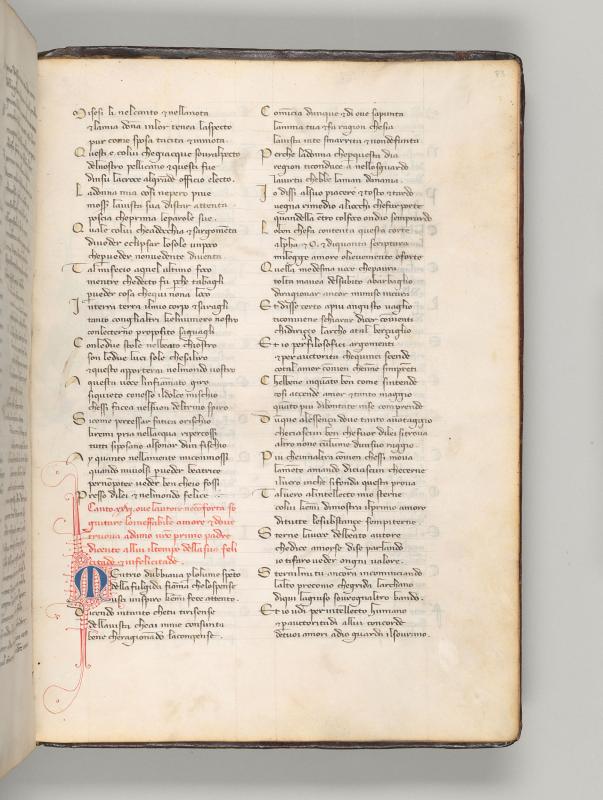 83
Misesi li nel canto & nella nota
& la mia dōna in lor tenea laspecto
pur come sposa tacita & immota
Questi e colui che giacque sovral pecto
del nostro pellicano & questi fue
dinsu lacroce algrāde officio electo
La dōna mia cosi ne pero piue
mosser la vista sua di star attenta
poscia che prima le parole sue
Quale colui che adocchia & sargomēta
di veder eclipsar lo sole un poco
che per veder non vedente diventa
Tal mi fecio a quel ultimo foco
mentre che decto fu pche tabagli
per veder cosa che qui non a loco
In terra terra il mio corpo & saragli
tanto cogli altri chel numero nostro
con lecterno proposito sagguagli
Con le due stole nel beato chiostro
son le due luci sole che saliro
& questo apporterai nel mondo vostro
A questa voce linfiamato giro
si queto con esso il dolce mischio
che si facea nel suon del trino spiro
Si come per cessar fatica o rischio
li remi pria nellacqua ripercossi
tutti si posano al sonar dun fischio
Ay quanto nella mente mi commossi
quando mi volsi per veder beatrice
per non poter veder ben chio fossi
Presso di lei & nel mondo felice
Canto xxvj ove lautore
gniture loineffabile amore & dove
truova adamo nr̄o primo padre
dicente allui il tempo della sua feli
citade & infelicitade
Mentrio dubbiava plo lume spēto
della fulgida fiāma che lo spense
usci un spiro che mi fece attento
Dicendo intanto che tu ti risense
della vista che ai in me consunta
bene che ragionādo la compense
Comīcia dunque & di ove sapunta
lanima tua & fa ragion che sia
la vista in te smarrita & non defunta
Perche la dōna che per questa dia
region ti conduce a nello sguardo
la virtu chebbe la man danania
Io dissi al suo piacere & tosto & tardo
vegna rimedio aliocchi che fur porte
quandella ētro col foco ondio semprardo
Lo ben che fa contenta questa corte
alpha & O. e di quanta scriptura
mi legge amore o lievemente o forte
Quella medesma voce che paura
tolta mavea del subito abarbaglio
di ragionar ancor mi mise in cura
Et disse certo a piu angusto vaglio
ti conviene schiarar dicer cōvienti
chi drizzo larcho tuo a tal berzaglio
Et io per filosofici argomenti
& per auctorita che quinci scende
cotal amor cōvien chen me simprēti
Che bene in quāto ben come sintende
cosi accende amor & tanto maggio
quato piu di bontate in se comprende
Duque alessenza dove tanto avātaggio
che ciascun ben che fuor di lei si trova
altro none cun lume di suo raggio
Piu che in altra cōvien che ssi mova
la mente amando di ciascun che cerne
il vero in che si fonda questa prova
Tal vero alintellecto mio sterne
colui che mi dimostra il primo amore
di tutte le substanze sempiterne
Sterne la voce del verace autore
che dice a moyse di se parlando
io ti faro veder ongni valore
Sternilmi tu ancora incominciando
lalto preconio che grida larchano
di qui laggiuso sovrognaltro bando
Et io udi per intellecto humano
& per autoritadi allui concorde
de tuoi amori a dio guarda il sovrano